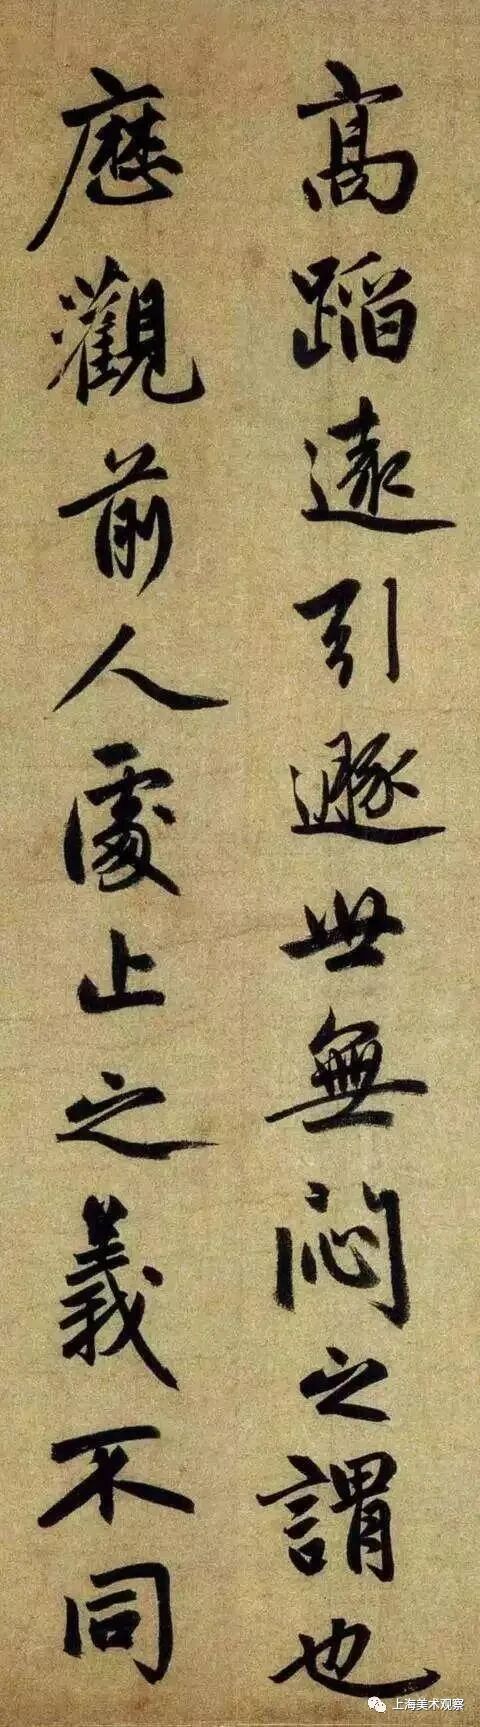 高蹈遠引遯世無悶之謂也
歷觀前人處止之義不同
上海美术观察